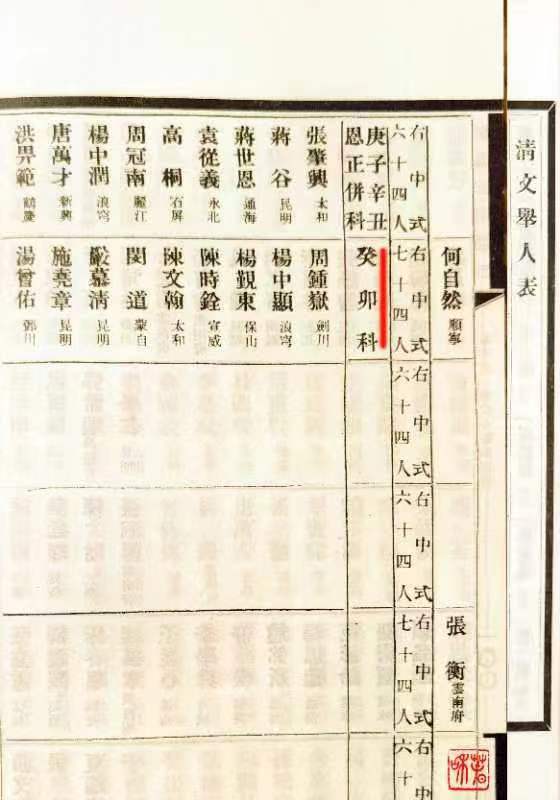 清文舉人表
何自然 順寧
張衡 雲南府
右中式六十四人
右中式七十四人
右中式六十四人
右中式六十四人
右中式七十四人
右中式六十
庚子辛丑恩正併科
張肇興 太和
蔣谷 昆明
蔣世恩 通海
袁從義 永北
高桐 石屏
周冠南 麗江
楊中潤 浪穹
唐萬才 新興
洪畀範 鶴慶
癸卯科
周鍾嶽 劍川
楊中顯 浪穹
楊覲東 保山
陳時銓 宣威
陳文翰 太和
閔道 蒙自
嚴慕清 昆明
施堯章 昆明
湯曾佑 鄧川